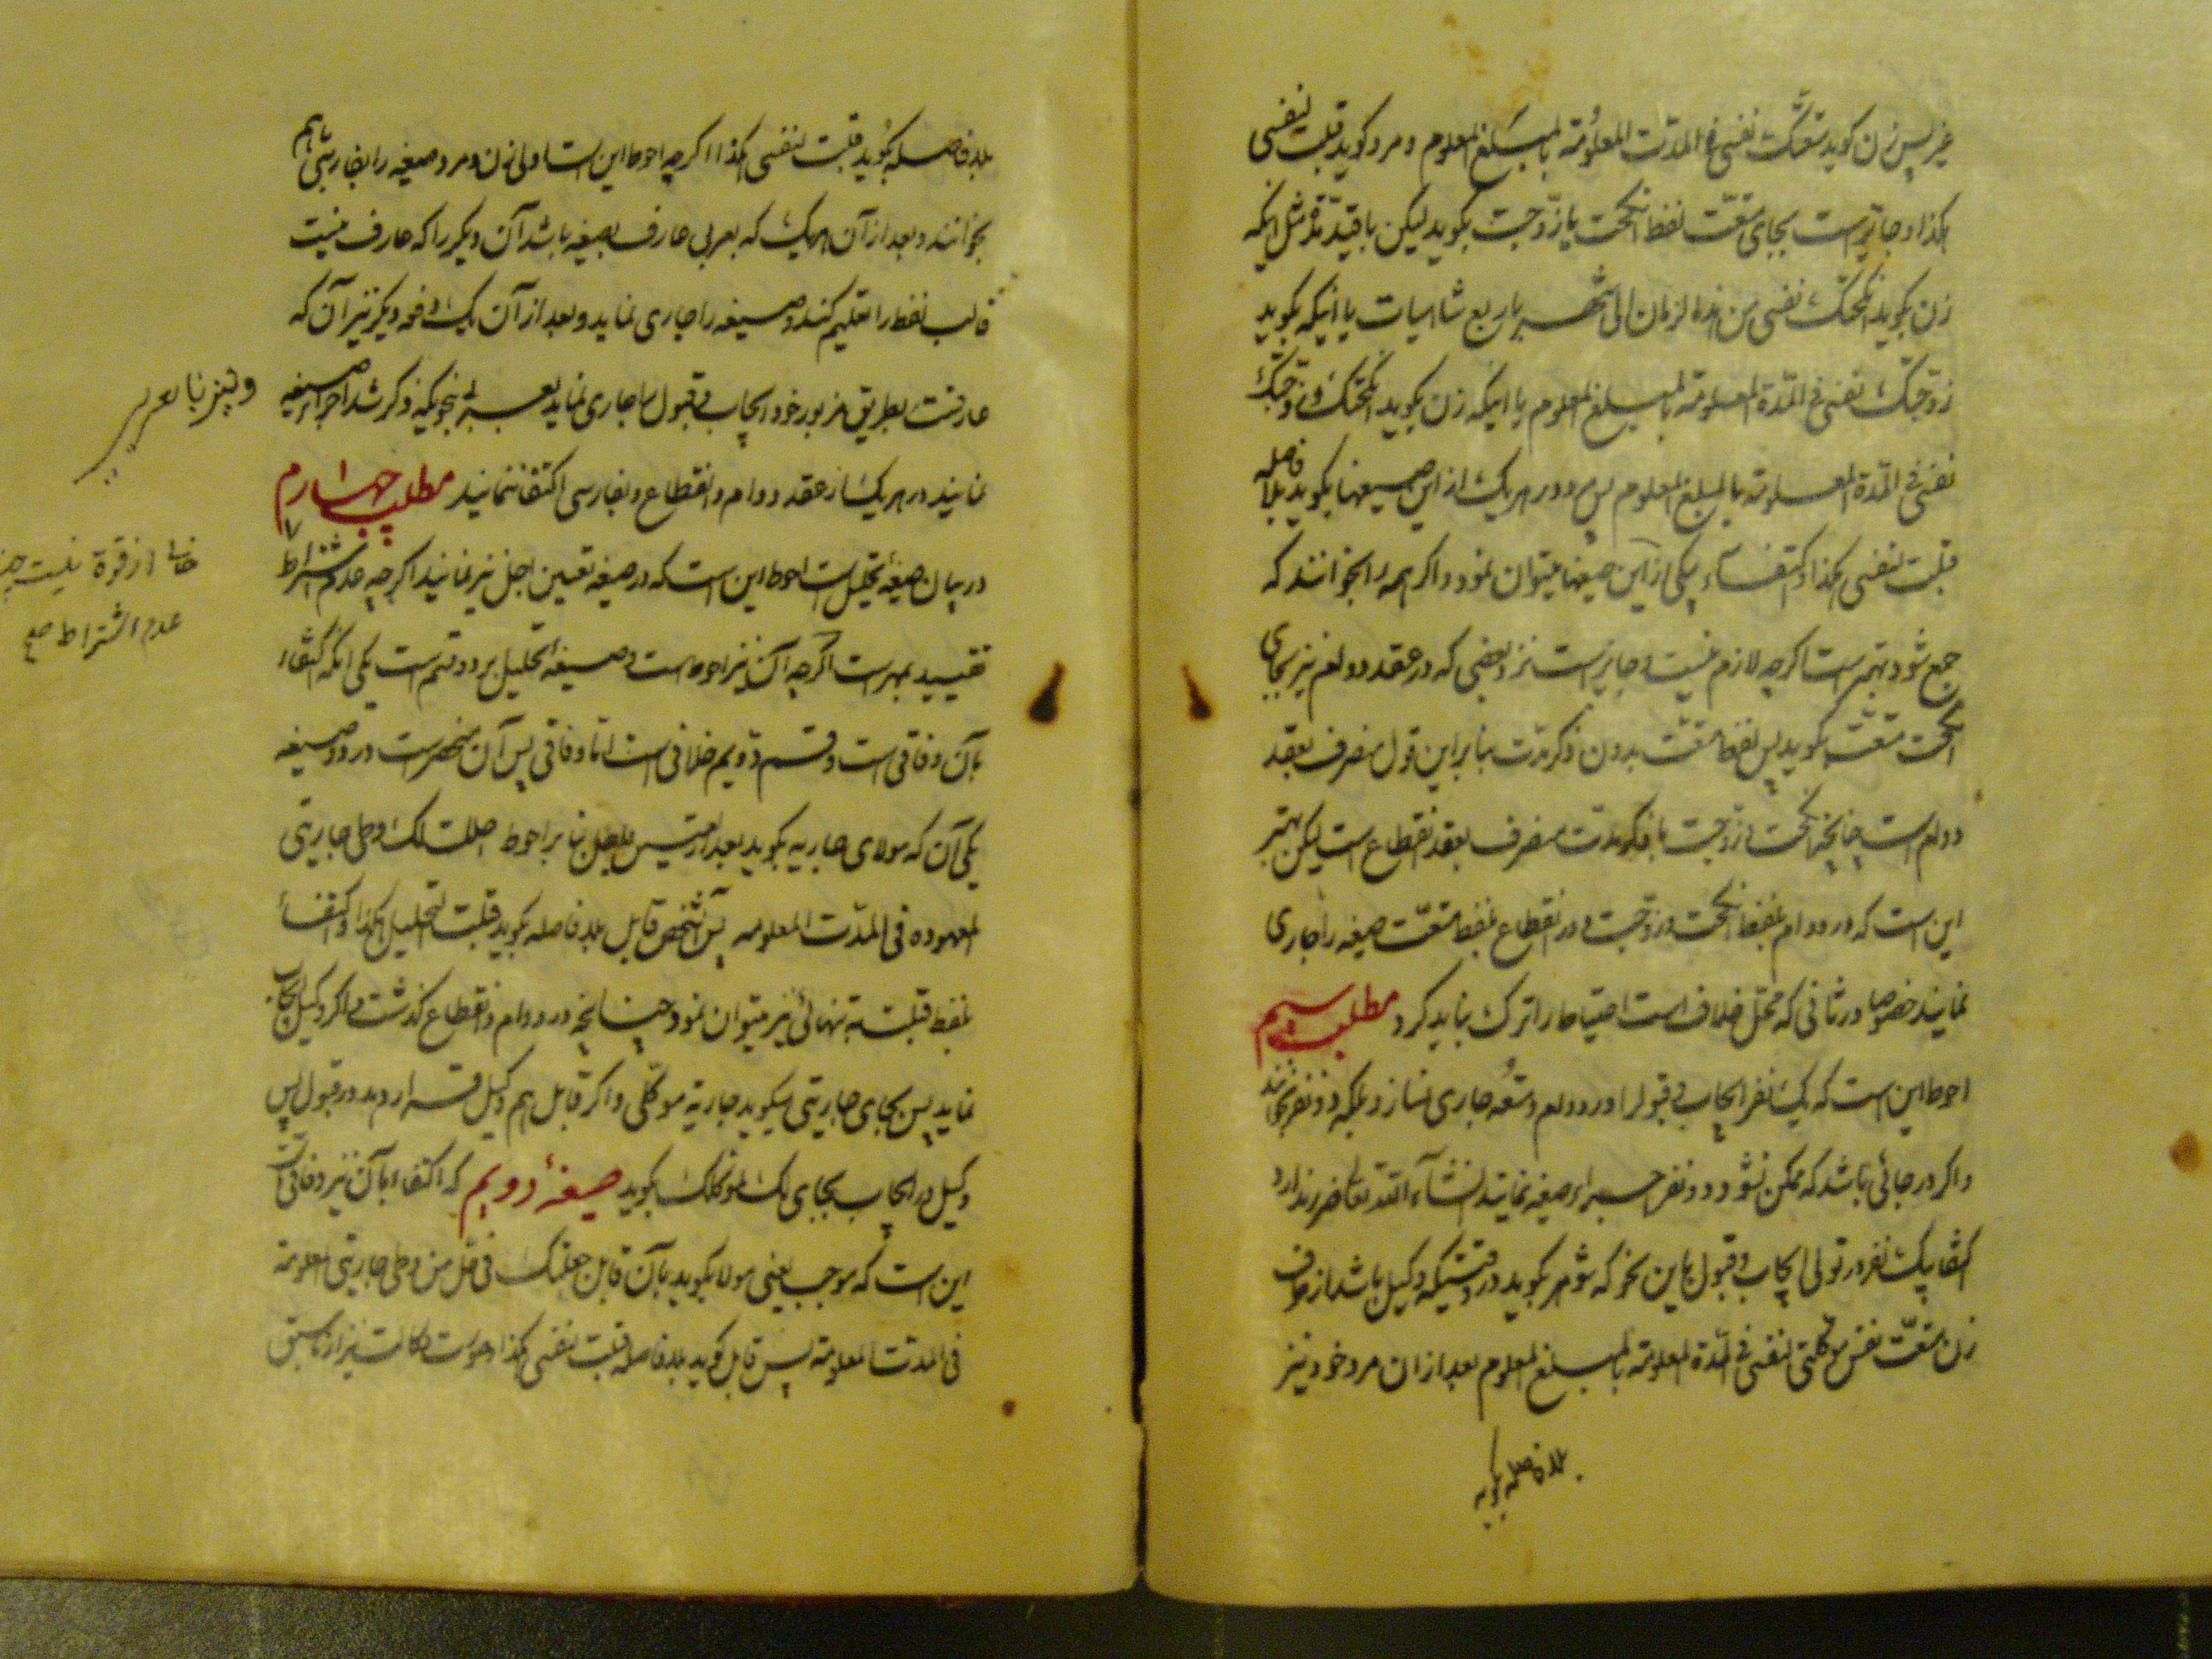 پس زن کوید متعتک نفسی فی المدّت المعلومة بالمبلغ المعلوم و مرد کوید قبلت لنفسی
هکذا و جایز است بجای متعّت لفظ انکحت یا زوّجت بکوید لیکن با قید مدّت مثل اینکه
زن بکوید انکحتک نفسی من هذا الزمان الی شهر باربع شاهیات یا اینکه بکوید
زوّجتک نفسی فی المدّة المعلومة بالمبلغ المعلوم یا اینکه زن بکوید انکحتک و زوّجتک
نفسی فی المدّة المعلومة بالمبلغ المعلوم پس مرد در هر یک از این صیغها بکوید بلا فاصله
قبلت لنفسی هکذا و اکتفاء بیکی از این صیغها میتوان نمود و اکر همه را بخوانند که
جمع شود بهتر است اکرچه لازم نیست و جایز است نزد بعضی که در عقد دوام نیز بجای
انکحت متعّت بکوید پس لفظ متعّت بدون ذکر مدّت بنا بر این قول منصرف بعقد
دوام است چنانچه انکحت و زوّجت با ذکر مدت منصرف بعقد انقطاع است لیکن بهتر
این است که در دوام بلفظ انکحت و زوّجت و در انقطاع بلفظ متعّت صیغه را جاری
نمایند خصوصا در ثانی که محتمل خلاف است احتیاط را ترک نباید کرد مطلب سیم
احوط این است که یک نفر ایجاب و قبول را در دوام و متعه جاری نسازد بلکه دو نفر بخوانند
و اکر در جائی باشد که ممکن نشود دو نفر اجراء صیغه نمایند انشآء الله تعالی ضرر ندارد
اکتفا بیک نفر در تولی ایجاب و قبول باین نحو که شوهر بکوید در وقتیکه وکیل باشد از طرف
زن متعّت نفس موکّلتی لنفسی فی المدّة المعلومة بالمبلغ المعلوم بعد از ان مرد خود نیز
بلا فاصله بکوید
بلا فاصله بکوید قبلت لنفسی هکذا اکرچه احوط این است اولی زن و مرد صیغه را بفارسی با هم
بخوانند و بعد از آن هر یک که بعربی عارف بصیغه باشد آن دیکر را که عارف نیست
قالب لفظ را تعلیم کند و صیغه را جاری نماید و بعد از آن یک دفعه دیکر نیز آن که
عارفست بطریق مزبور خود ایجاب و قبول را جاری نماید بعربی بنحویکه ذکر شد اجراء صیغه
نمایند در هر یک از عقد دوام و انقطاع و بفارسی اکتفا ننمایند مطلب چهارم
در بیان صیغهٔ تحلیل است احوط این است که در صیغه تعیین اجل نیز نمایند اکرچه عدم اشتراط
تقیید بهتر است اکرچه آن نیز احوط است و صیغهٔ تحلیل بر دو قسم است یکی انکه اکتفاء
بآن وفاقی است و قسم دویم خلافی است امّا وفاقی پس آن منحصر است در دو صیغه
یکی آن که مولای جاریه بکوید بعد از تعیین اجل بنا بر احوط احللت لک وطی جاریتی
المعهوده فی المدّت المعلومه پس شخص قابل بلا فاصله بکوید قبلت التحلیل هکذا و اکتفا
بلفظ قبلت به تنهائی نیز میتوان نمود چنانچه در دوام و انقطاع کذشت و اکر وکیل ایجاب
نماید پس بجای جاریتی بکوید جاریة موکّلی و اکر قابل هم وکیل قرار دهد در قبول پس
وکیل در ایجاب بجای لک لموکلک بکوید صیغهٔ دویم که اکتفاء بآن نیز وفاقی است
این است که موجب یعنی مولا بکوید بآن قابل جعلتک فی حلّ من وطی جاریتی المعلومة
فی المدّت المعلومة پس قابل کوید بلا فاصله قبلت لنفسی هکذا و صورت وکالت نیز از ما سبق
عدم اشتراط صح